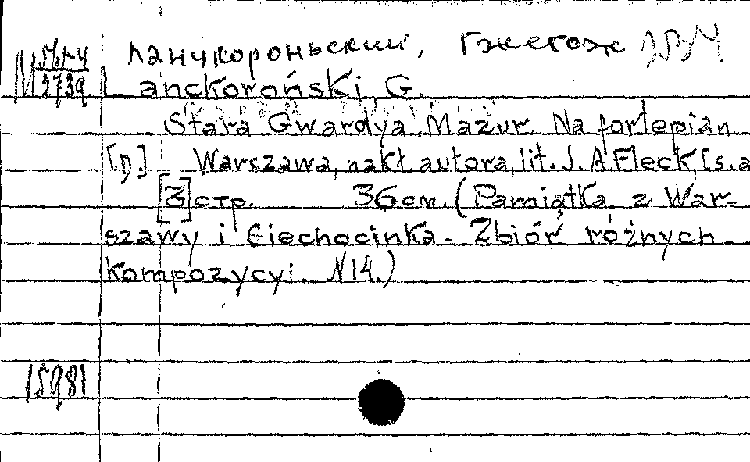 Ланцкороньский, Гжегож
M 3739
Lanckoroński, G.
Stara Gwardya. Mazur. Na fortepian
Warszawa, nakł. autora, lit. J. A Fleck [s. a
[3] стр. 36 см. (Pamiątka z War-
szawy i Ciechocinka. Zbiór różnych
kompozycyi. N14.)
15981